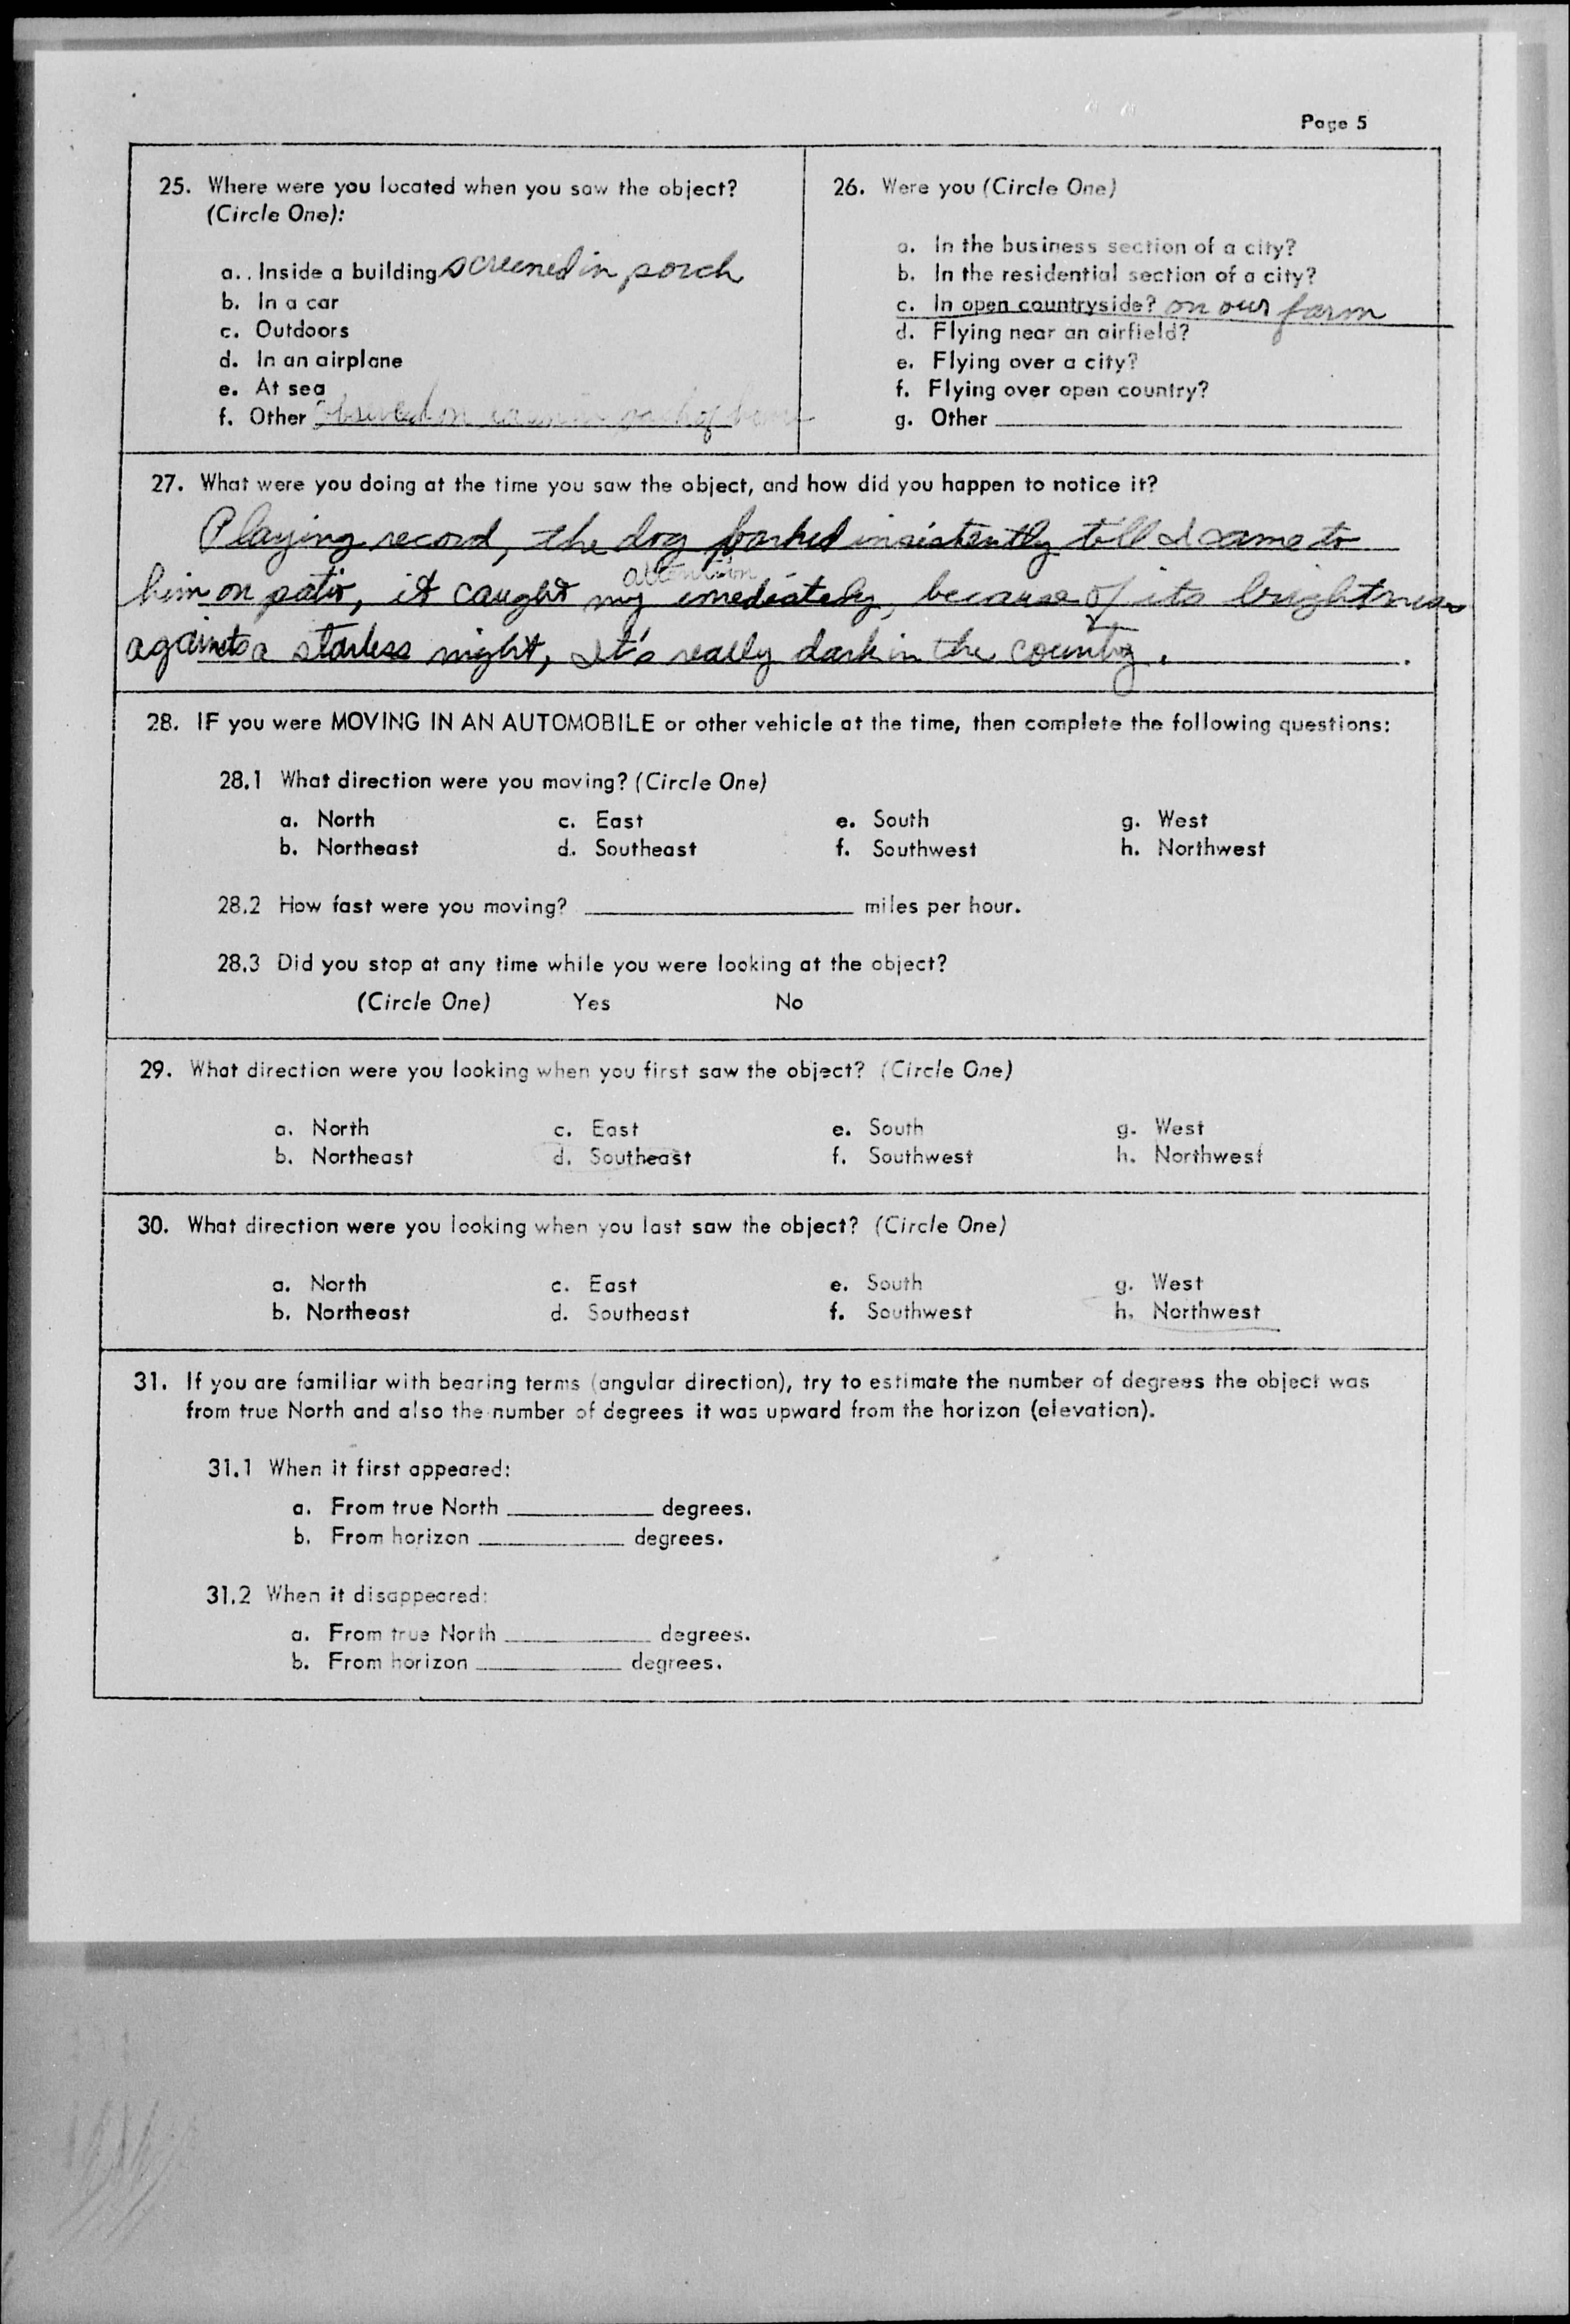 Page 5
25. Where were you located when you saw the object?
(Circle One):
a. . Inside a building screened in porch
b. In a car
c. Outdoors
d. In an airplane
e. At sea
f. Other observed on
26. Were you (Circle One)
a. In the business section of a city?
b. In the residential section of a city?
c. In open countryside? on our farm
d. Flying near an airfield?
e. Flying over a city?
f. Flying over open country?
g. Other
27. What were you doing at the time you saw the object, and how did you happen to notice it?
Playing record, the dog barked insistently till I came to
attention
him on patio, it caught my imediately, because of its brightness
against a starless night, It's really dark in the country.
28. IF you were MOVING IN AN AUTOMOBILE or other vehicle at the time, then complete the following questions:
28.1 What direction were you moving? (Circle One)
a. North c. East e. South g. West
b. Northeast d. Southeast f. Southwest h. Northwest
28.2 How fast were you moving? miles per hour.
28.3 Did you stop at any time while you were looking at the object?
(Circle One) Yes No
29. What direction were you looking when you first saw the object? (Circle One)
a. North c. East e. South g. West
b. Northeast d. Southeast f. Southwest h. Northwest
30. What direction were you looking when you last saw the object? (Circle One)
a. North c. East e. South g. West
b. Northeast d. Southeast f. Southwest h. Northwest
31. If you are familiar with bearing terms (angular direction), try to estimate the number of degrees the object was
from true North and also the number of degrees it was upward from the horizon (elevation).
31.1 When it first appeared:
a. From true North degrees.
b. From horizon degrees.
31.2 When it disappeared:
a. From true North degrees.
b. From horizon degrees.